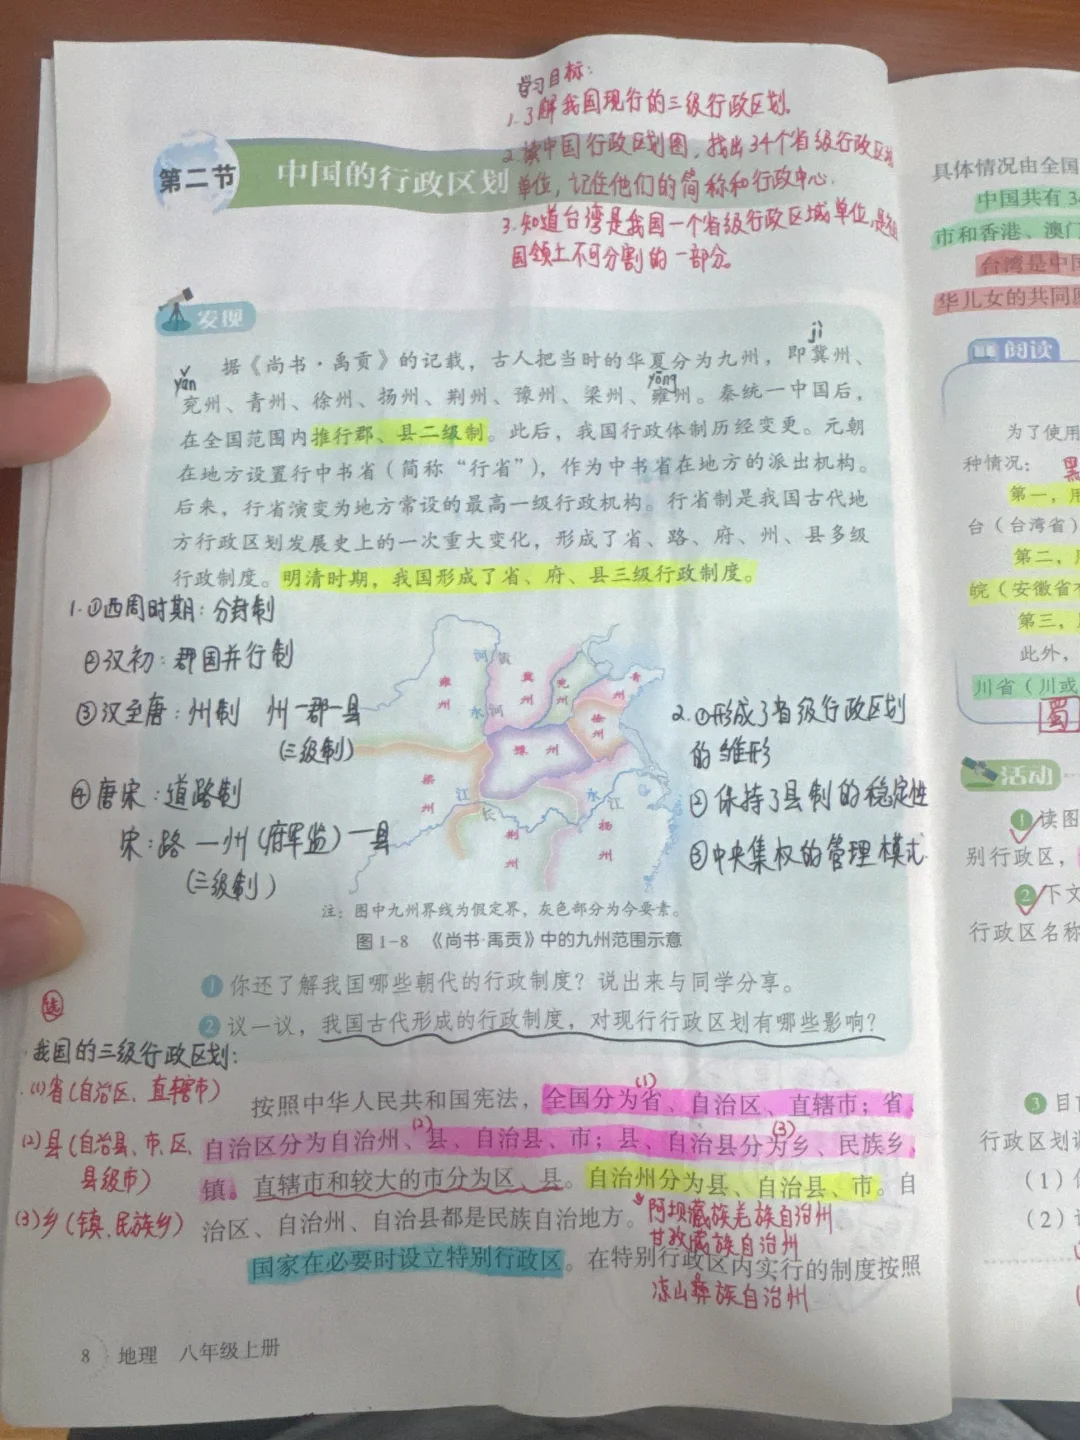 学习目标:
1.了解我国现行的三级行政区划。
2.读中国行政区划图,找出34个省级行政区域
单位,记住他们的简称和行政中心.
3.知道台湾是我国一个省级行政区域单位,是祖
国领土不可分割的一部分。
第二节 中国的行政区划
发现
jì
据《尚书·禹贡》的记载,古人把当时的华夏分为九州,即冀州、
yǎn
yōng
兖州、青州、徐州、扬州、荆州、豫州、梁州、雍州。秦统一中国后,
在全国范围内推行郡、县二级制。此后,我国行政体制历经变更。元朝
在地方设置行中书省(简称“行省”),作为中书省在地方的派出机构。
后来,行省演变为地方常设的最高一级行政机构。行省制是我国古代地
方行政区划发展史上的一次重大变化,形成了省、路、府、州、县多级
行政制度。明清时期,我国形成了省、府、县三级行政制度。
1.①西周时期:分封制
②汉初:郡国并行制
③汉至唐:州制 州一郡一县
(三级制)
④唐宋:道路制
宋:路一州(府军监)一县
(三级制)
河 黄
雍州
冀州
兖州
青州
水河
徐州
豫州
梁州
江
长
荆州
水 江
扬州
2.①形成了省级行政区划
的雏形
②保持了县制的稳定性
③中央集权的管理模式.
注:图中九州界线为假定界,灰色部分为今要素。
图1-8 《尚书·禹贡》中的九州范围示意
1 你还了解我国哪些朝代的行政制度?说出来与同学分享。
2 议一议,我国古代形成的行政制度,对现行行政区划有哪些影响?
选
我国的三级行政区划:
(1)省(自治区、直辖市)
(2)县(自治县、市、区、
县级市)
(3)乡(镇、民族乡)
(1)
按照中华人民共和国宪法,全国分为省、自治区、直辖市;省、
(2) (3)
自治区分为自治州、县、自治县、市;县、自治县分为乡、民族乡、
镇。直辖市和较大的市分为区、县。自治州分为县、自治县、市。自
治区、自治州、自治县都是民族自治地方。
阿坝藏族羌族自治州
甘孜藏族自治州
国家在必要时设立特别行政区。在特别行政区内实行的制度按照
凉山彝族自治州
8 地理 八年级上册
具体情况由全国
中国共有3
市和香港、澳门
台湾是中国
华儿女的共同
阅读
为了使用
种情况:
第一,用
台(台湾省)
第二,
皖(安徽省
第三,
此外,
川省(川或
蜀
活动
1 读图
别行政区,
2 下文
行政区名称
3 目
行政区划
(1)
(2)